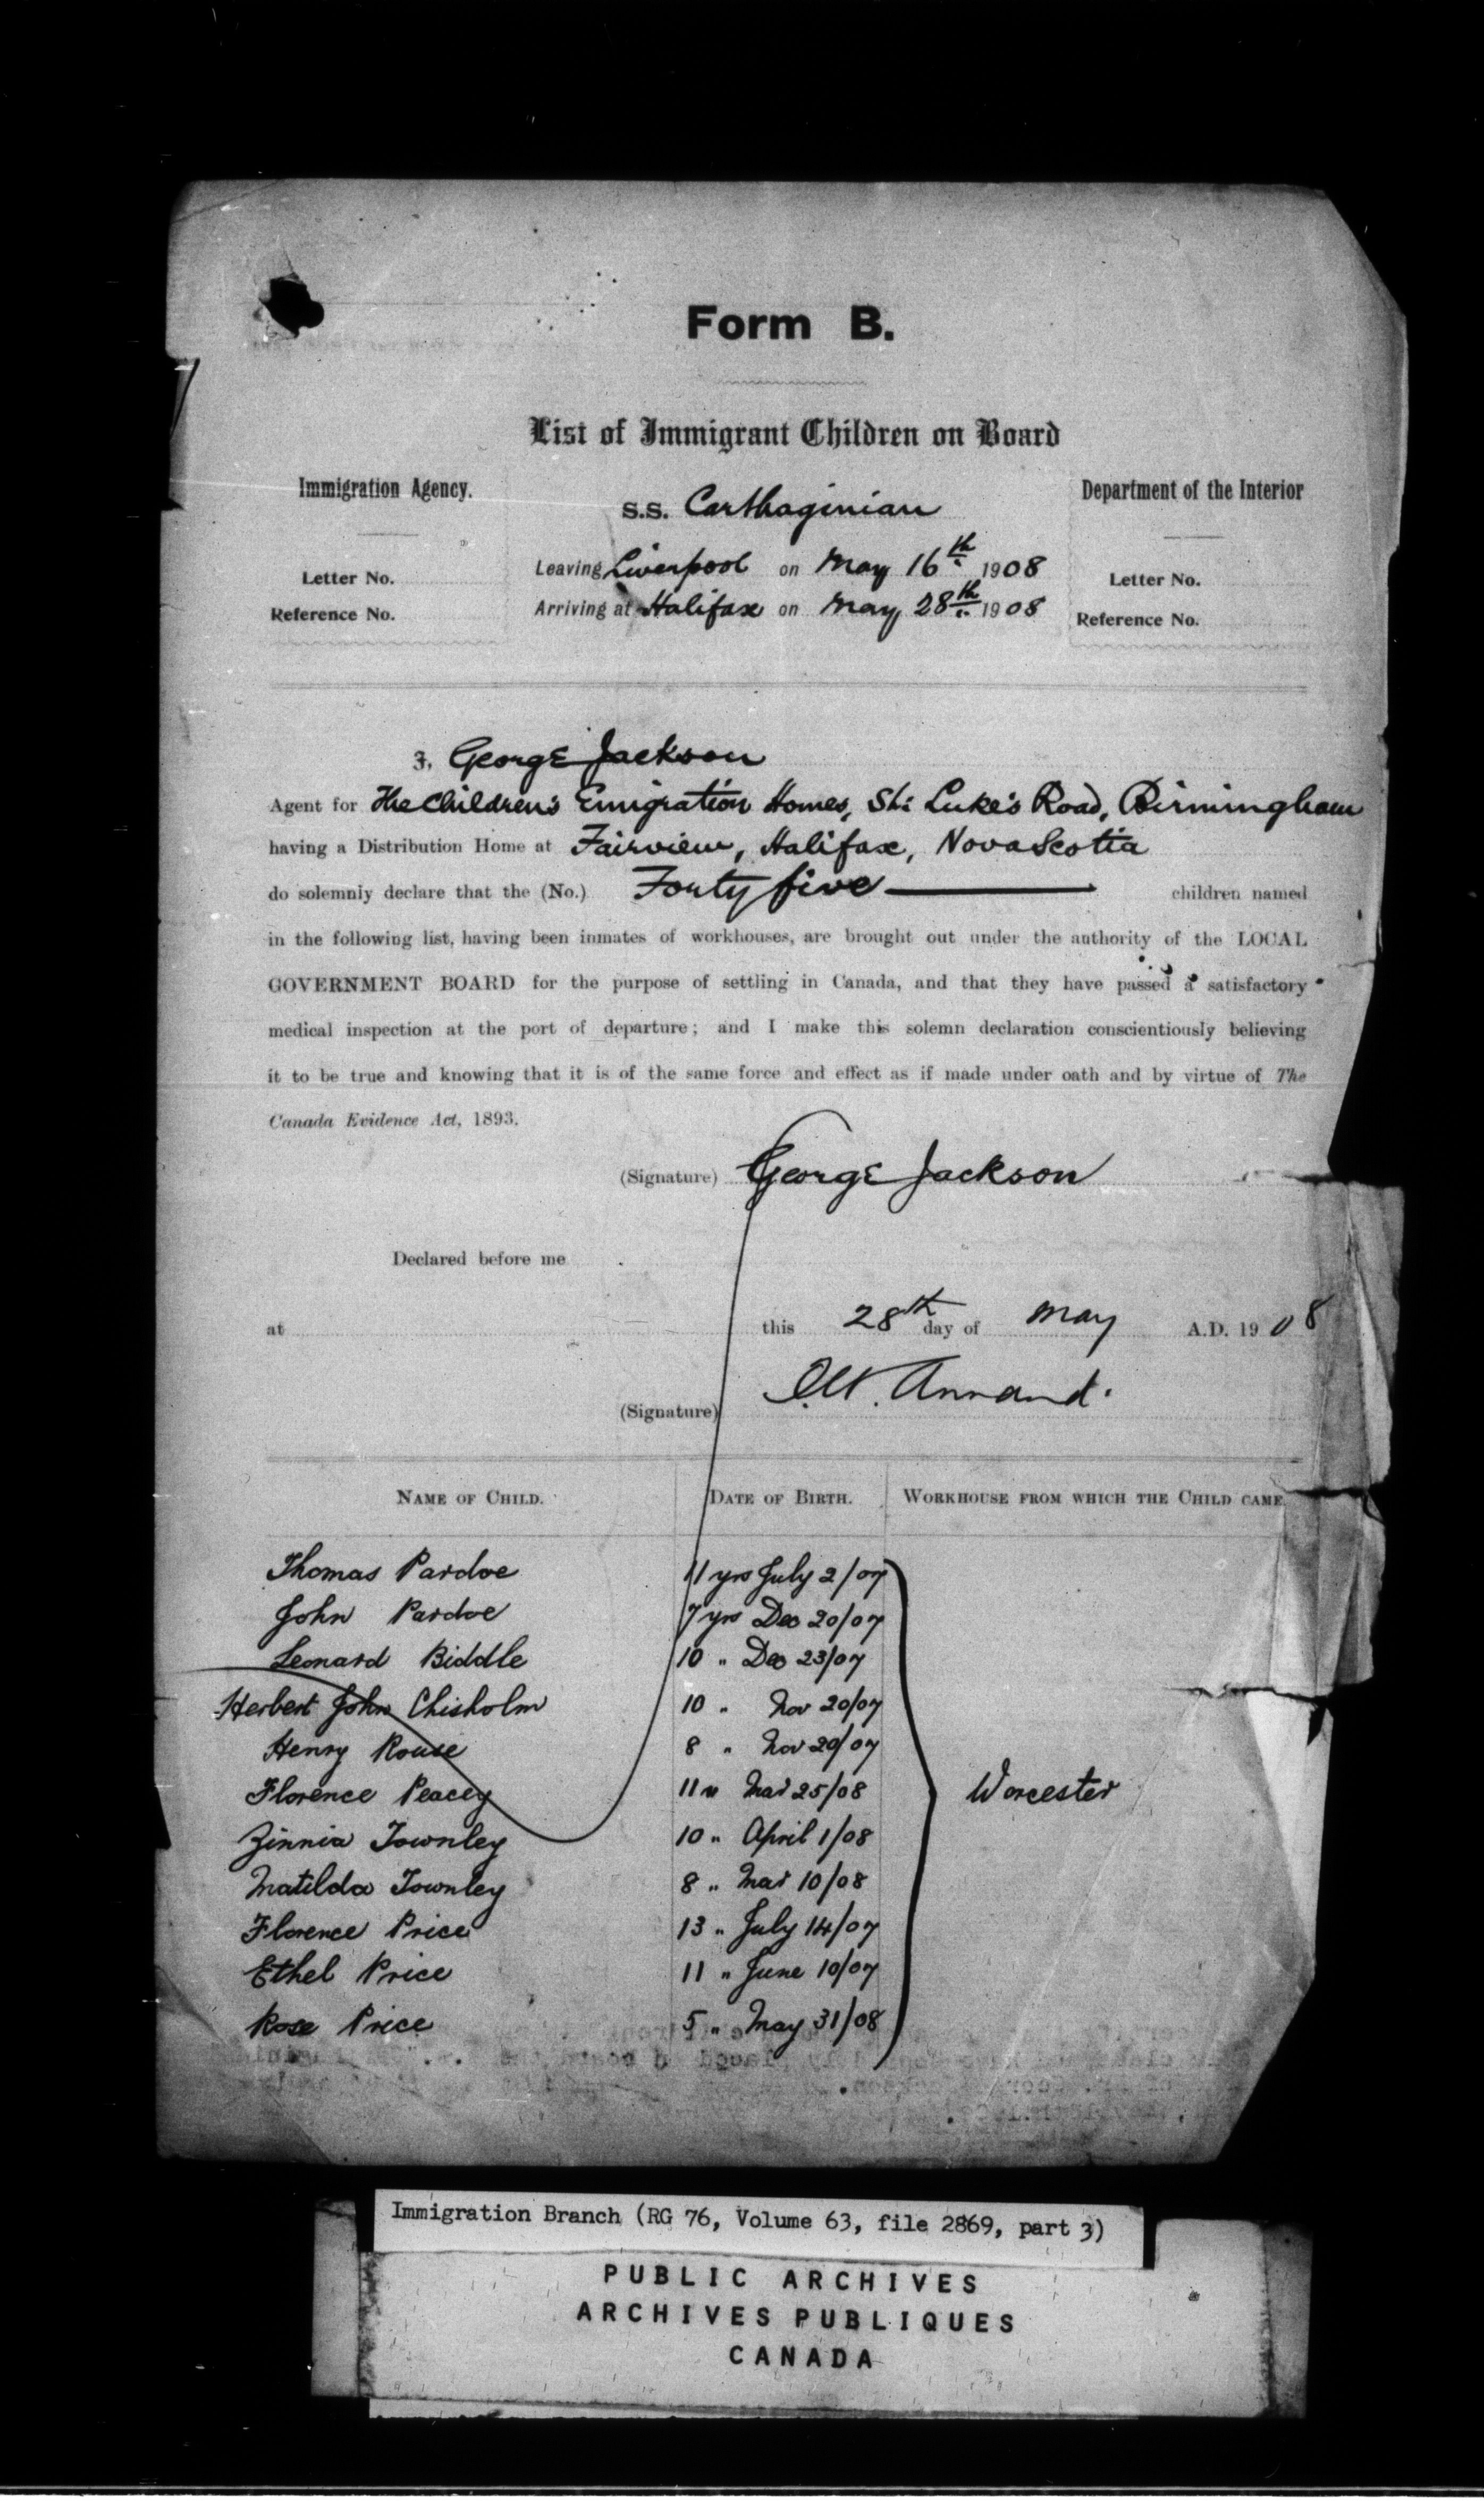 Form B.
List of Immigrant Children on Board
Immigration Agency.
S.S. Carthaginian
Department of the Interior
Letter No.
Leaving Liverpool on May 16th 1908
Letter No.
Reference No.
Arriving at Halifax on May 28th 1908
Reference No.
I, George Jackson
Agent for The Children's Emigration Homes, St. Luke's Road, Birmingham
having a Distribution Home at Fairview, Halifax, Nova Scotia
do solemnly declare that the (No.) Forty five children named
in the following list, having been inmates of workhouses, are brought out under the authority of the LOCAL
GOVERNMENT BOARD for the purpose of settling in Canada, and that they have passed a satisfactory
medical inspection at the port of departure; and I make this solemn declaration conscientiously believing
it to be true and knowing that it is of the same force and effect as if made under oath and by virtue of The
Canada Evidence Act, 1893.
(Signature) George Jackson
Declared before me
at this 28th day of May A.D. 1908
(Signature) Annand.
NAME OF CHILD. DATE OF BIRTH. WORKHOUSE FROM WHICH THE CHILD CAME.
Thomas Pardoe 11 yrs July 2/07
John Pardoe 7 yrs Dec 20/07
Leonard Biddle 10 " Dec 23/07
Herbert John Chisholm 10 " Nov 20/07
Henry Rouse 8 " Nov 20/07
Florence Peacey 11 " Mar 25/08 Worcester
Zinnia Townley 10 " April 1/08
Matilda Townley 8 " Mar 10/08
Florence Price 13 " July 14/07
Ethel Price 11 " June 10/07
Rose Price 5 " May 31/08
Immigration Branch (RG 76, Volume 63, file 2869, part 3)
PUBLIC ARCHIVES
ARCHIVES PUBLIQUES
CANADA